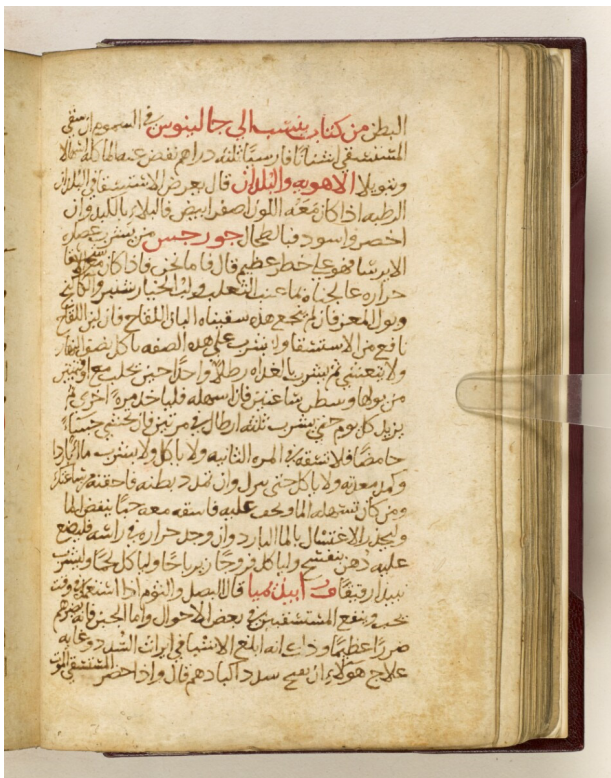 البطن من كتاب ينسب الى جالينوس في السموم ان سقى
المستسقى افسنتانا فارسيا ثلثه دراهم نفض عنه الما كله اسهالا
وتبويلا الاهويه والبلدان قال يعرض الاستسقا في البلدان
الرطبه اذا كان معه اللون اصفر ابيض فالبلاء بالكبد وان
اخضر واسود فبالطحال جورجس من يشرب عصاره
الايرسا فهو على خطر عظيم قال فاما نحن فاذا كان مع
حراره عالجناه بما عنب الثعلب ولب الخيارشنبر والكاكنج
وبول المعز فان لم ينجع هذه سقيناه البان اللقاح فان لبن اللقاح
نافع من الاستسقا ولا يشرب على هذه الصفه ياكل نصف النهار
ولا يتعشى ثم يشرب بالغداه رطلا واحدا حين يحلب مع اوقيتين
من بولها وسطر ساعتين فان اسهله فلياخذ مره اخرى ثم
يزيد كل يوم حتى يشرب ثلثه ارطال في مرتين فان تجشى جشاء
حامضا فلا تسقه في المره الثانيه ولا ياكل ولا يشرب ما باردا
وكمد معدته ولا ياكل حتى ينزل وان تمدد بطنه فاحقنه من ساعتك
ومن كان تسهله الما ويخف عليه فاسقه معه حبا ينفض الما
وليحذر الاغتسال بالما البارد وان وجد حراره في راسه فليضع
عليه دهن بنفسج ولياكل فروجا زيرباجا ولياكل لحما وليشرب
نبيذا رقيقا ابيذيميا قال البصل والثوم اذا استعملا في وقت
يجب وينفع المستسقيين في بعض الاحوال واما الجبن فانه يضرهم
ضررا عظيما وذلك انه ابلغ الاشيا في ايراث السدد وغايه
علاج هولاء ان يفتح سدد اكبادهم قال واذا احضر المستسقى الموت